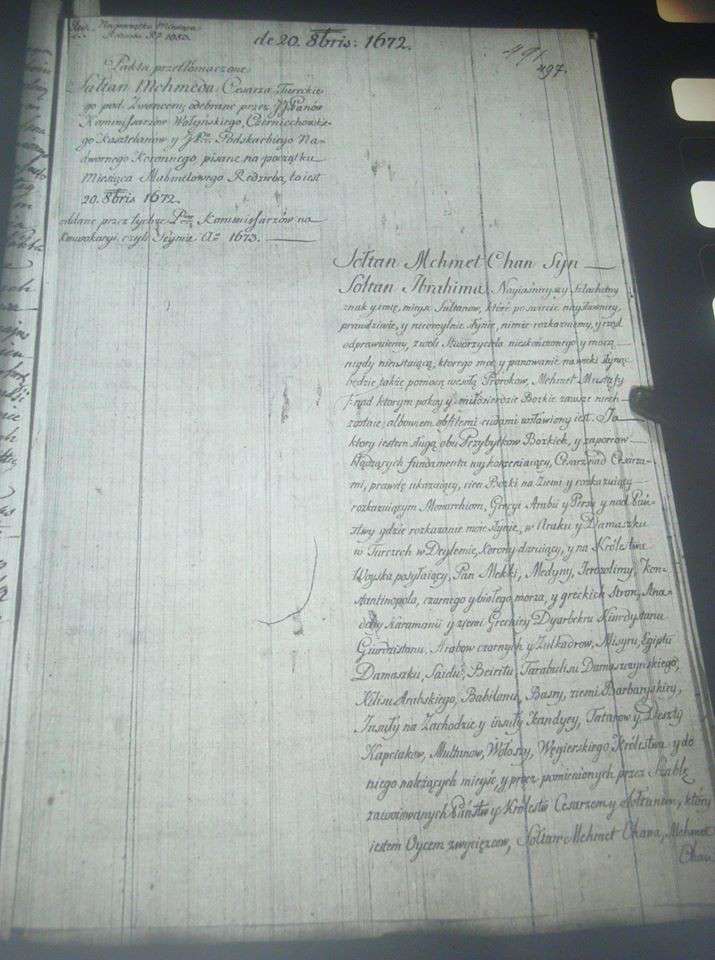 de 20. 8bris: 1672.
497.
Pakta przetłomaczone
Sułtan Mehmeda Cesarza Tureckie-
go pod Zwańcem odebrane przez JJ Panów
Kommissarzów Wołyńskiego, Czerniechowskie-
go Kasztelanów y JPna Podskarbiego Na-
dwornego Koronnego pisane na początku
Miesiąca Mahmetowego Redzieba, to iest
20. 8bris 1672.
oddane przez tychże Kommissarzów na
czyli Seymie Ao 1673.
Sołtan Mehmet Chan Syn
Sołtan Ibrahima, Nayiaśnieyszy szlachetny
znak y imię, mieysce Sułtanow, który po świecie naysławniey,
prawdziwie, y nieomylnie słynie, nimże rozkazuiemy, y rząd
odprawuiemy, z woli Stworzyciela nieskończonego y mocą
nigdy nieustaiącą, ktorego moc y panowanie na wieki słynąć
będzie także pomocą Prorokow, Mehmet Mustafy
nad ktorym pokoy y miłosierdzie Bozkie zawsze niech
zostaie, albowiem obfitemi cudami wsławiony iest. Ja
ktory iestem sługą obu Przybytkow Bozkich, y zaporow
błądzących fundamenta wykorzeniaiący, Cesarz nad Cesarza-
mi, prawdę ukazuiący, cień Bozki na Ziemi y rozkazuiący
rozkazuiącym Monarchom, Grecyi Arabii y Persyi y nad Pań-
stwy gdzie rozkazanie moie słynie, w Iraku y Damaszku
w Turczech w Deylemie, korony daruiący, y na Królestwa
Woyska posyłaiący, Pan Mekki, Medyny, Jerozolimy, Kon-
stantinopola, czarnego y białego morza, y greckich stron, Ana-
doly Karamanii y ziemi Greckiey Dyarbekru Kurdystanu
Giurdzistanu, Arabow czarnych y Zulkadrow, Misyru, Egiptu
Damaszku, Saidu, Beiritu, Tarabulusu Damaszyńskiego,
Kilisu Arabskiego, Babilonu, Basry, ziemi Barbaryiskiey,
Insuły na Zachodzie y insuły Kandyey, Tatarow y Deszty
Kapciakow, Multanow, Wołoszy, Węgierskiego Królestwa y do
niego należących mieysc, y przez pomienionych przez Szablę
zawoiowanych Państw y Królestw Cesarzem y Sołtanem, który
iestem Oycem zwycięzcow, Sołtan Mehmet Chana, Mehmet
Chan